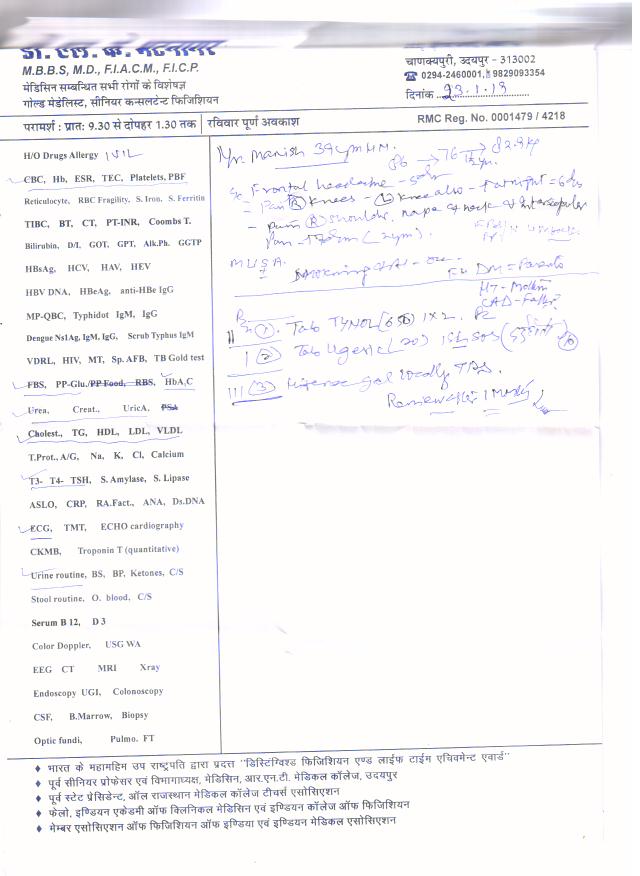 M.B.B.S, M.D., F.I.A.C.M., F.I.C.P.
मेडिसिन सम्बन्धित सभी रोगों के विशेषज्ञ
गोल्ड मेडेलिस्ट, सीनियर कन्सलटेन्ट फिजिशियन
चाणक्यपुरी, उदयपुर - 313002
☎ 0294-2460001, 9829093354
दिनांक 23.1.18
परामर्श : प्रातः 9.30 से दोपहर 1.30 तक | रविवार पूर्ण अवकाश
RMC Reg. No. 0001479 / 4218
H/O Drugs Allergy NIL
CBC, Hb, ESR, TEC, Platelets, PBF
Reticulocyte, RBC Fragility, S. Iron, S. Ferritin
TIBC, BT, CT, PT-INR, Coombs T.
Bilirubin, D/I, GOT, GPT, Alk.Ph. GGTP
HBsAg, HCV, HAV, HEV
HBV DNA, HBeAg, anti-HBe IgG
MP-QBC, Typhidot IgM, IgG
Dengue Ns1Ag, IgM, IgG, Scrub Typhus IgM
VDRL, HIV, MT, Sp. AFB, TB Gold test
FBS, PP-Glu./PP Food, RBS, HbA,C
Urea, Creat., UricA. PSA
Cholest., TG, HDL, LDL, VLDL
T.Prot., A/G, Na, K, Cl, Calcium
T3- T4- TSH, S. Amylase, S. Lipase
ASLO, CRP, RA.Fact., ANA, Ds.DNA
ECG, TMT, ECHO cardiography
CKMB, Troponin T (quantitative)
Urine routine, BS, BP, Ketones, C/S
Stool routine, O. blood, C/S
Serum B 12, D 3
Color Doppler, USG WA
EEG CT MRI Xray
Endoscopy UGI, Colonoscopy
CSF, B.Marrow, Biopsy
Optic fundi, Pulmo. FT
Mr. Manish 39
86 → 76 → 82.9 kg
Frontal headache
- Pain (R) Knees - (L) Knee also
- Pain (R) shoulder, nape of neck
DM = Parents
HT - Mother
CAD - Father
(1). Tab TYNOL (650) 1x2
(2) Tab Ugesic (20) SOS
(3) gel locally TDS.
Review after 1 Month
♦ भारत के महामहिम उप राष्ट्रपति द्वारा प्रदत्त "डिस्टिंग्विश्ड फिजिशियन एण्ड लाईफ टाईम एचिवमेन्ट एवार्ड"
♦ पूर्व सीनियर प्रोफेसर एवं विभागाध्यक्ष, मेडिसिन, आर.एन.टी. मेडिकल कॉलेज, उदयपुर
♦ पूर्व स्टेट प्रेसिडेन्ट, ऑल राजस्थान मेडिकल कॉलेज टीचर्स एसोसिएशन
♦ फेलो, इण्डियन एकेडमी ऑफ क्लिनिकल मेडिसिन एवं इण्डियन कॉलेज ऑफ फिजिशियन
♦ मेम्बर एसोसिएशन ऑफ फिजिशियन ऑफ इण्डिया एवं इण्डियन मेडिकल एसोसिएशन